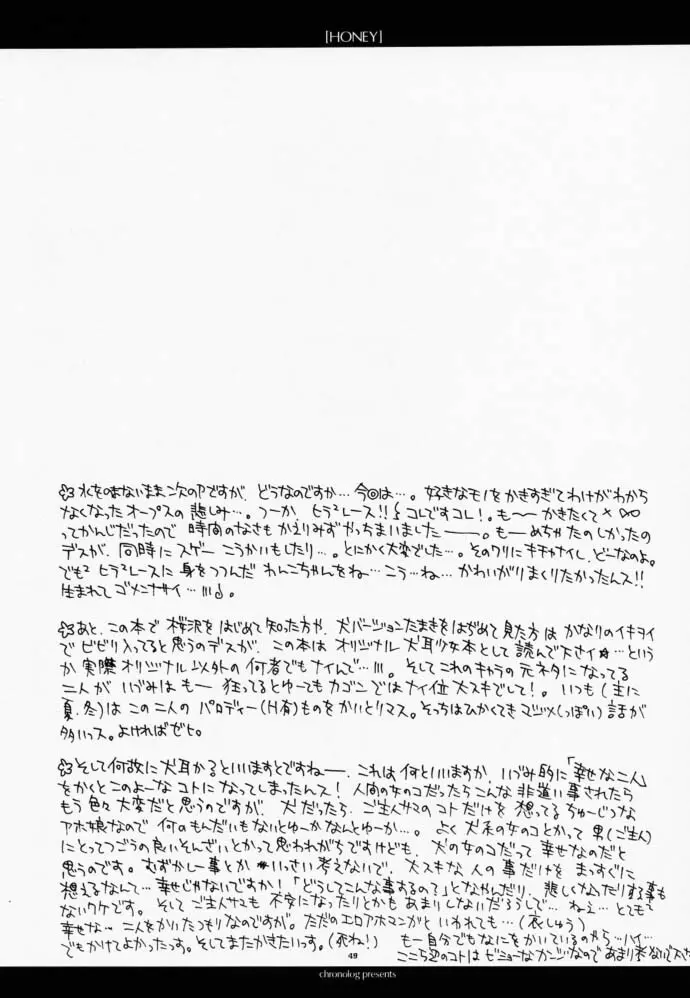 [HONEY]
水をのまないまま次のPですが、どうなのですか…今回は…。好きなモノをかきすぎてわけがわから
なくなったオープスの悲しみ…。つーか、ヒラ²レース!!コレですコレ!。も〜〜かきたくて
ってかんじだったので 時間のなさもかえりみずやっちまいましたー。もーめちゃたのしかったの
デスが、同時にスゲー こうかいもしたり…。とにかく大変でした…。そのワリにキチャナイし、どーなのよ。
でも² ヒラ²レースに身をつつんだ わんこちゃんをね…こう…ね… かわいがりまくりたかったんス!!
生まれて ゴメンナサイ…
あと、この本で 桜沢をはじめて知った方や、犬バージョンたまきをはじめて見た方は かなりのイキヲイ
で ビビリ入ってると思うのデスが、この本は オリジナル 犬耳少女本として 読んで下さイ☆…という
か 実際オリジナル以外の何者でもナイんで…。そして これのキャラの元ネタになってる
二人が いづみはもー 狂ってるとゆーてもカゴンではナイ位 大スキでして!。いつも(主に
夏、冬)は この二人の パロディー(H有)ものを かいとりマス。そっちはひかくてきマジメ(っぽい)話が
多いっス。よければゼヒ。
そして何故に 犬耳かるといいますとですねー、これは 何といいますか、いづみ的に「幸せな二人」
をかくとこのよーな コトに なってしまったんス! 人間の女のコだったらこんな 非道い事されたら
もう色々 大変だと思うのですが、犬だったら、ご主人サマのコトだけを 想ってる ちゅーじつな
アホ娘なので 何のもんだいもないとゆーかなんとゆーか…。よく犬系の女のコとかって 男(ご主人)
にとってつごうの良いそんざいとかって思われがちですけども、犬の女のコだって 幸せなのだと
思うのです。むずかしー事とか いっさい考えないで、大スキな人の事だけを まっすぐに
想えるなんて… 幸せじゃないですか!「どうしてこんな事するの?」となやんだり、悲しくなったりする事も
ないワケです。そして ご主人サマも 不安になったりとかも あまりしないだろうしで… ねぇ…とても
幸せな… 二人をかいたつもりなのですが。ただのエロアホマンガと いわれても…(哀しゅう)
でもかけてよかったっす。そしてまたかきたいっす。(死ね!) もー自分でもなにをかいているのやら…ハイ…
ここら辺のコトは ビミョーな
49
chronolog presents